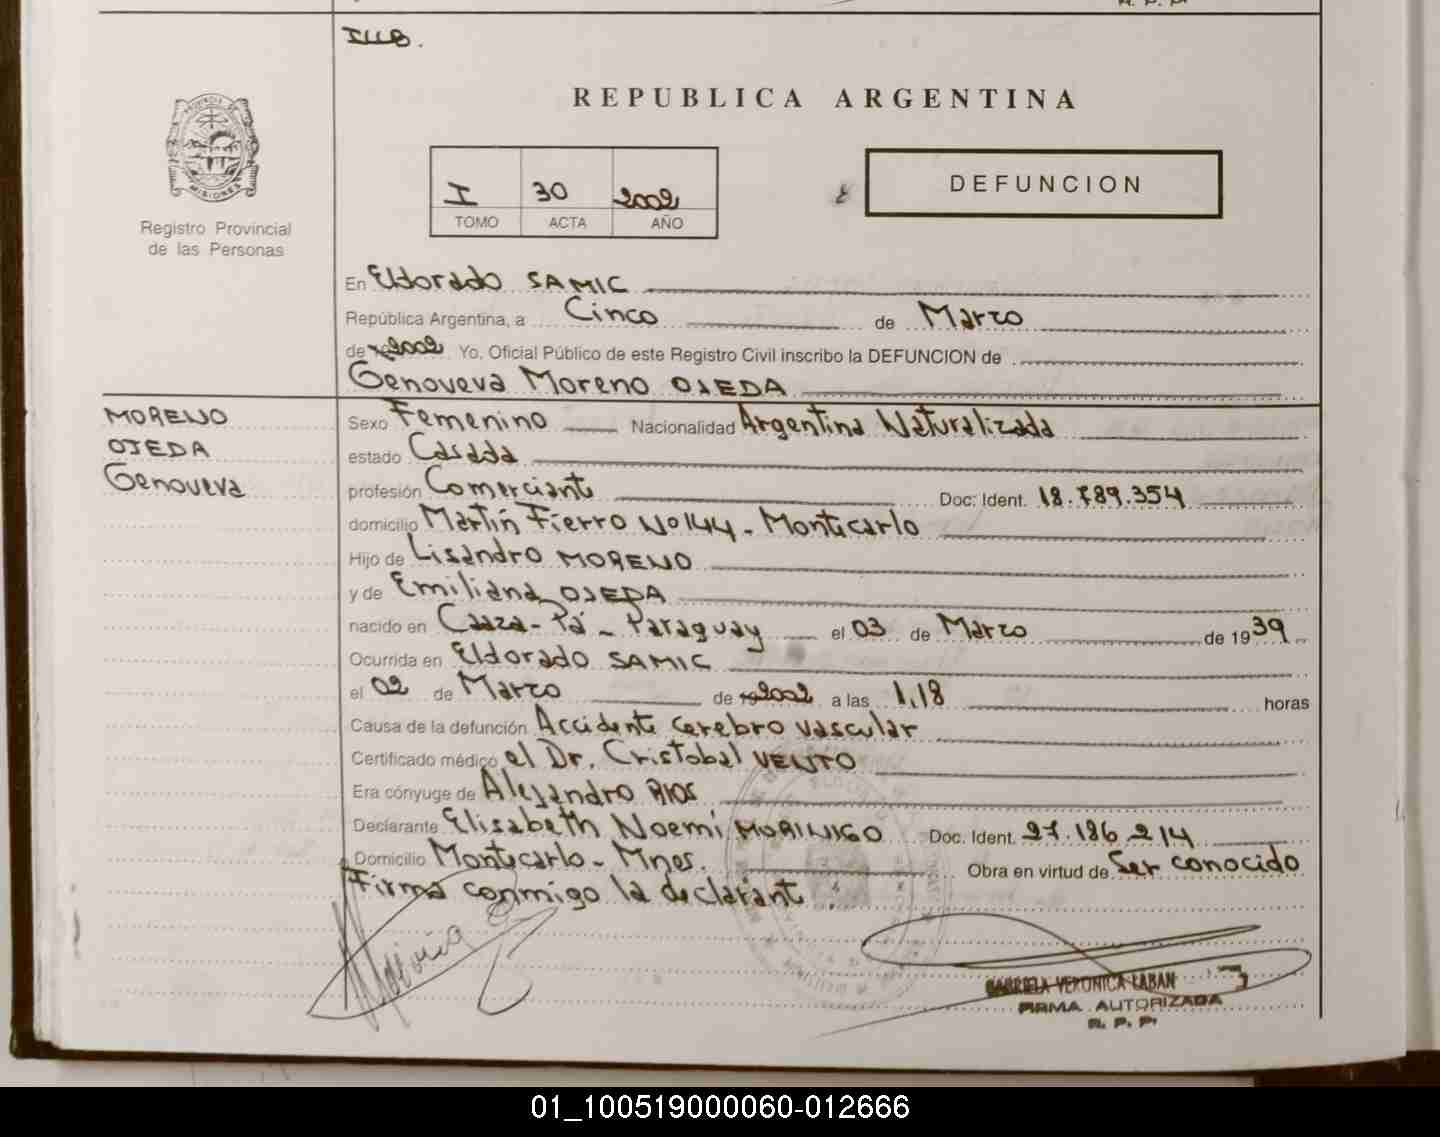 REPUBLICA ARGENTINA
PROVINCIA DE
MISIONES
Registro Provincial
de las Personas
I 30 2002
TOMO ACTA AÑO
DEFUNCION
En Eldorado SAMIC
República Argentina, a Cinco de Marzo
de 2002 Yo, Oficial Público de este Registro Civil inscribo la DEFUNCION de
Genoveva Moreno OJEDA
MORENO
OJEDA
Genoveva
Sexo Femenino Nacionalidad Argentina Naturalizada
estado Casada
profesión Comerciante Doc. Ident. 18.789.354
domicilio Martín Fierro Nº 144 - Monticarlo
Hijo de Lisandro MORENO
y de Emiliana OJEDA
nacido en Caaza-Pá - Paraguay el 03 de Marzo de 1939
Ocurrida en Eldorado SAMIC
el 02 de Marzo de 2002 a las 1,18 horas
Causa de la defunción Accidente Cerebro vascular
Certificado médico el Dr. Cristobal VENTO
Era cónyuge de Alejandro RIOS
Declarante Elisabeth Noemí MORINIGO Doc. Ident. 27.186.214
Domicilio Montecarlo - Mnes. Obra en virtud de Ser conocido
Firma conmigo la declarant
GABRIELA VERONICA LABAN
FIRMA AUTORIZADA
R. P. P.
01_100519000060-012666